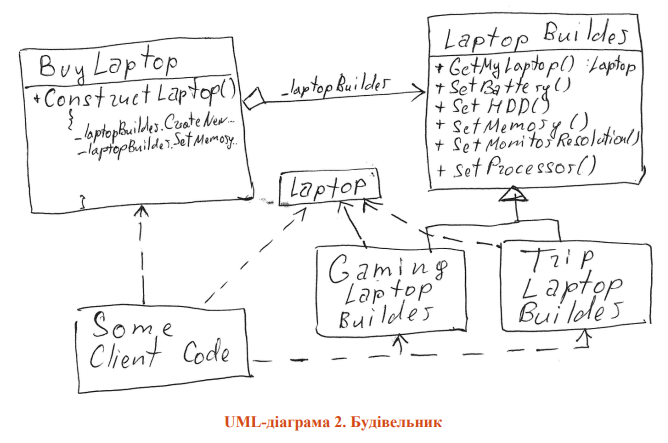 Buy Laptop
+ Construct Laptop()
{
_laptopBuilder.CreateNew..
_laptopBuilder.SetMemory..
}
_laptopBuilder
Laptop Builder
+ GetMyLaptop() : Laptop
+ Set Battery()
+ Set HDD()
+ Set Memory()
+ Set Monitor Resolution()
+ Set Processor()
Laptop
Gaming
Laptop
Builder
Trip
Laptop
Builder
Some
Client Code
UML-діаграма 2. Будівельник